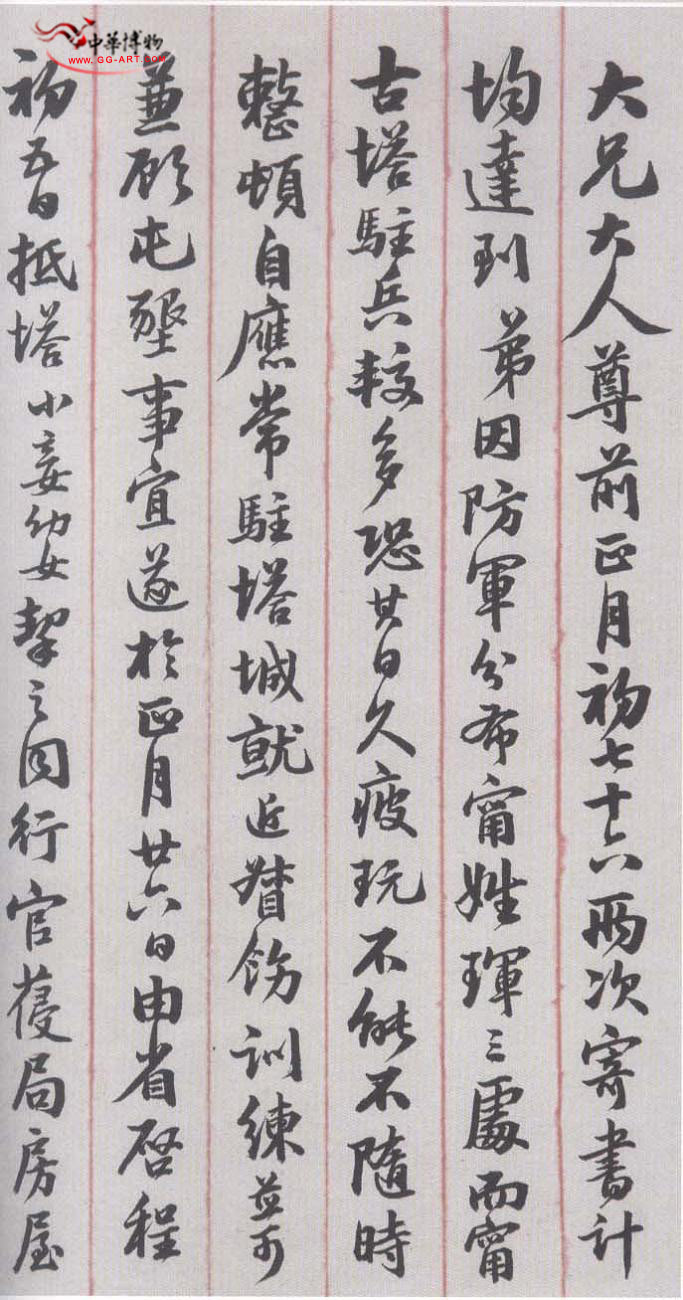 大兄大人尊前正月初七十六兩次寄書計
均達到弟因防軍分布甯姓琿三處而甯
古塔駐兵較多恐其日久疲玩不能不隨時
整頓自應常駐塔城就近督飭訓練並可
兼顧屯墾事宜遂於正月廿六日由省啓程
初五日抵塔小妾幼女挈之同行官葠局房屋
中華博物
www.GG-ART.COM